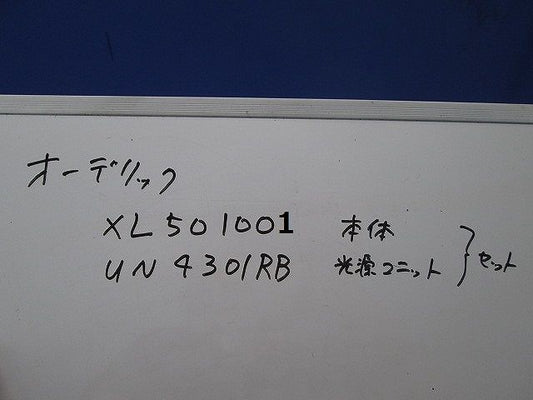 オーデリック
XL501001 本体
UN4301RB 光源ユニット } セット